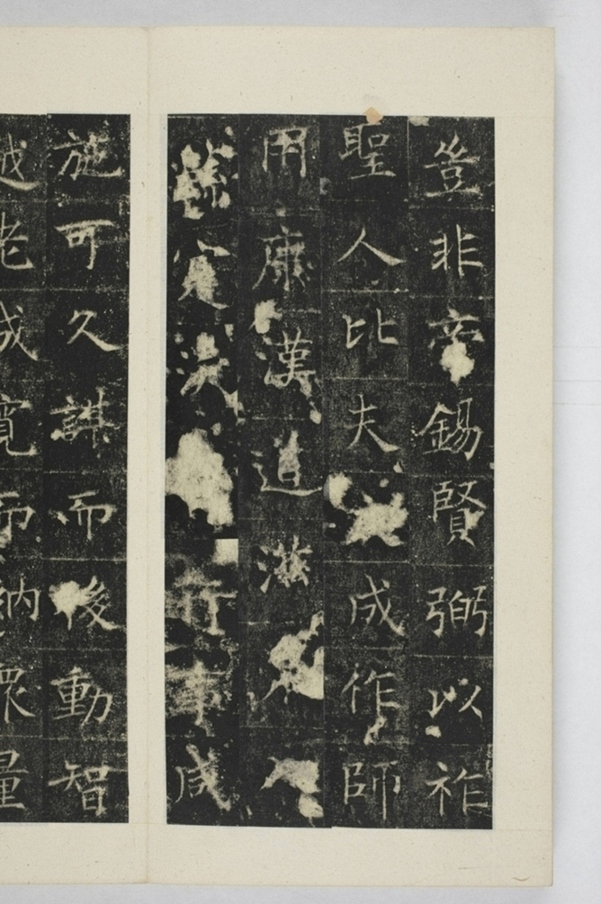 豈非帝錫賢弼以祚
聖人比夫成作師
用康漢道
定行事咸
施可久謀而後動智
越老成寬而納眾量